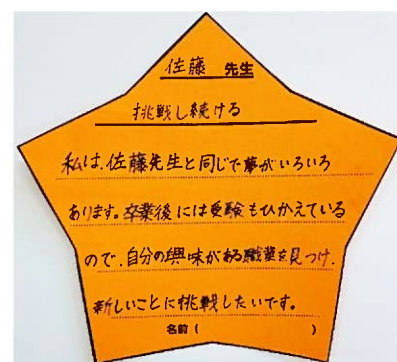 佐藤 先生
挑戦し続ける
私は、佐藤先生と同じで夢がいろいろ
あります。卒業後には受験もひかえている
ので、自分の興味がある職業を見つけ、
新しいことに挑戦したいです。
名前（ ）